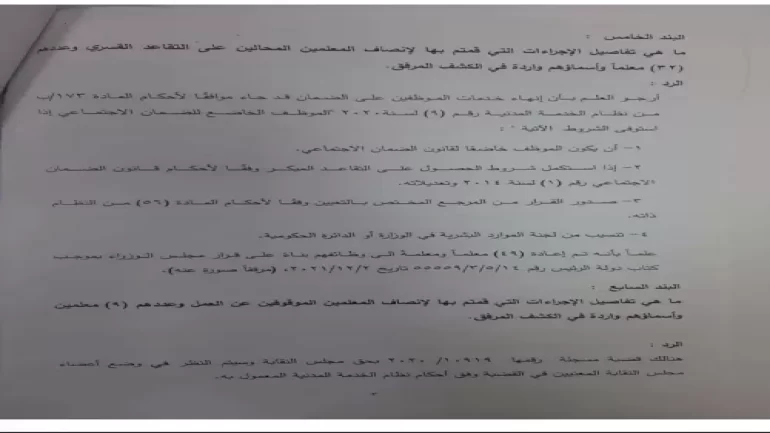 البند الخامس :
ما هي تفاصيل الإجراءات التي قمتم بها لإنصاف المعلمين المحالين على التقاعد القسري وعددهم
(٣٢) معلماً وأسماؤهم واردة في الكشف المرفق.
الرد :
أرجو العلم بأن إنهاء خدمات الموظفين على الضمان قد جاء موافقاً لأحكام المادة ١٧٣/ب
من نظام الخدمة المدنية رقم (٩) لسنة ٢٠٢٠ "الموظف الخاضع للضمان الاجتماعي إذا
استوفى الشروط الآتية" :
١- أن يكون الموظف خاضعاً لقانون الضمان الاجتماعي.
٢- إذا استكمل شروط الحصول على التقاعد المبكر وفقاً لأحكام قانون الضمان
الاجتماعي رقم (١) لسنة ٢٠١٤ وتعديلاته.
٣- صدور القرار من المرجع المختص بالتعيين وفقاً لأحكام المادة (٥٦) من النظام
ذاته.
٤- تنسيب من لجنة الموارد البشرية في الوزارة أو الدائرة الحكومية.
علماً بأنه تم إعادة (٤٩) معلماً ومعلمة الى وظائفهم بناءً على قرار مجلس الوزراء بموجب
كتاب دولة الرئيس رقم ٥٥٥٥٩/٣/٥/١٤ تاريخ ٢٠٢١/١٢/٢، (مرفقاً صورة عنه).
البند السابع :
ما هي تفاصيل الإجراءات التي قمتم بها لإنصاف المعلمين الموقوفين عن العمل وعددهم (٩) معلمين
وأسماؤهم واردة في الكشف المرفق.
الرد :
هنالك قضية مسجلة رقمها ٢٠٢٠/١٠٩١٩ بحق مجلس النقابة وسيتم النظر في وضع أعضاء
مجلس النقابة المعنيين في القضية وفق أحكام نظام الخدمة المدنية المعمول به.